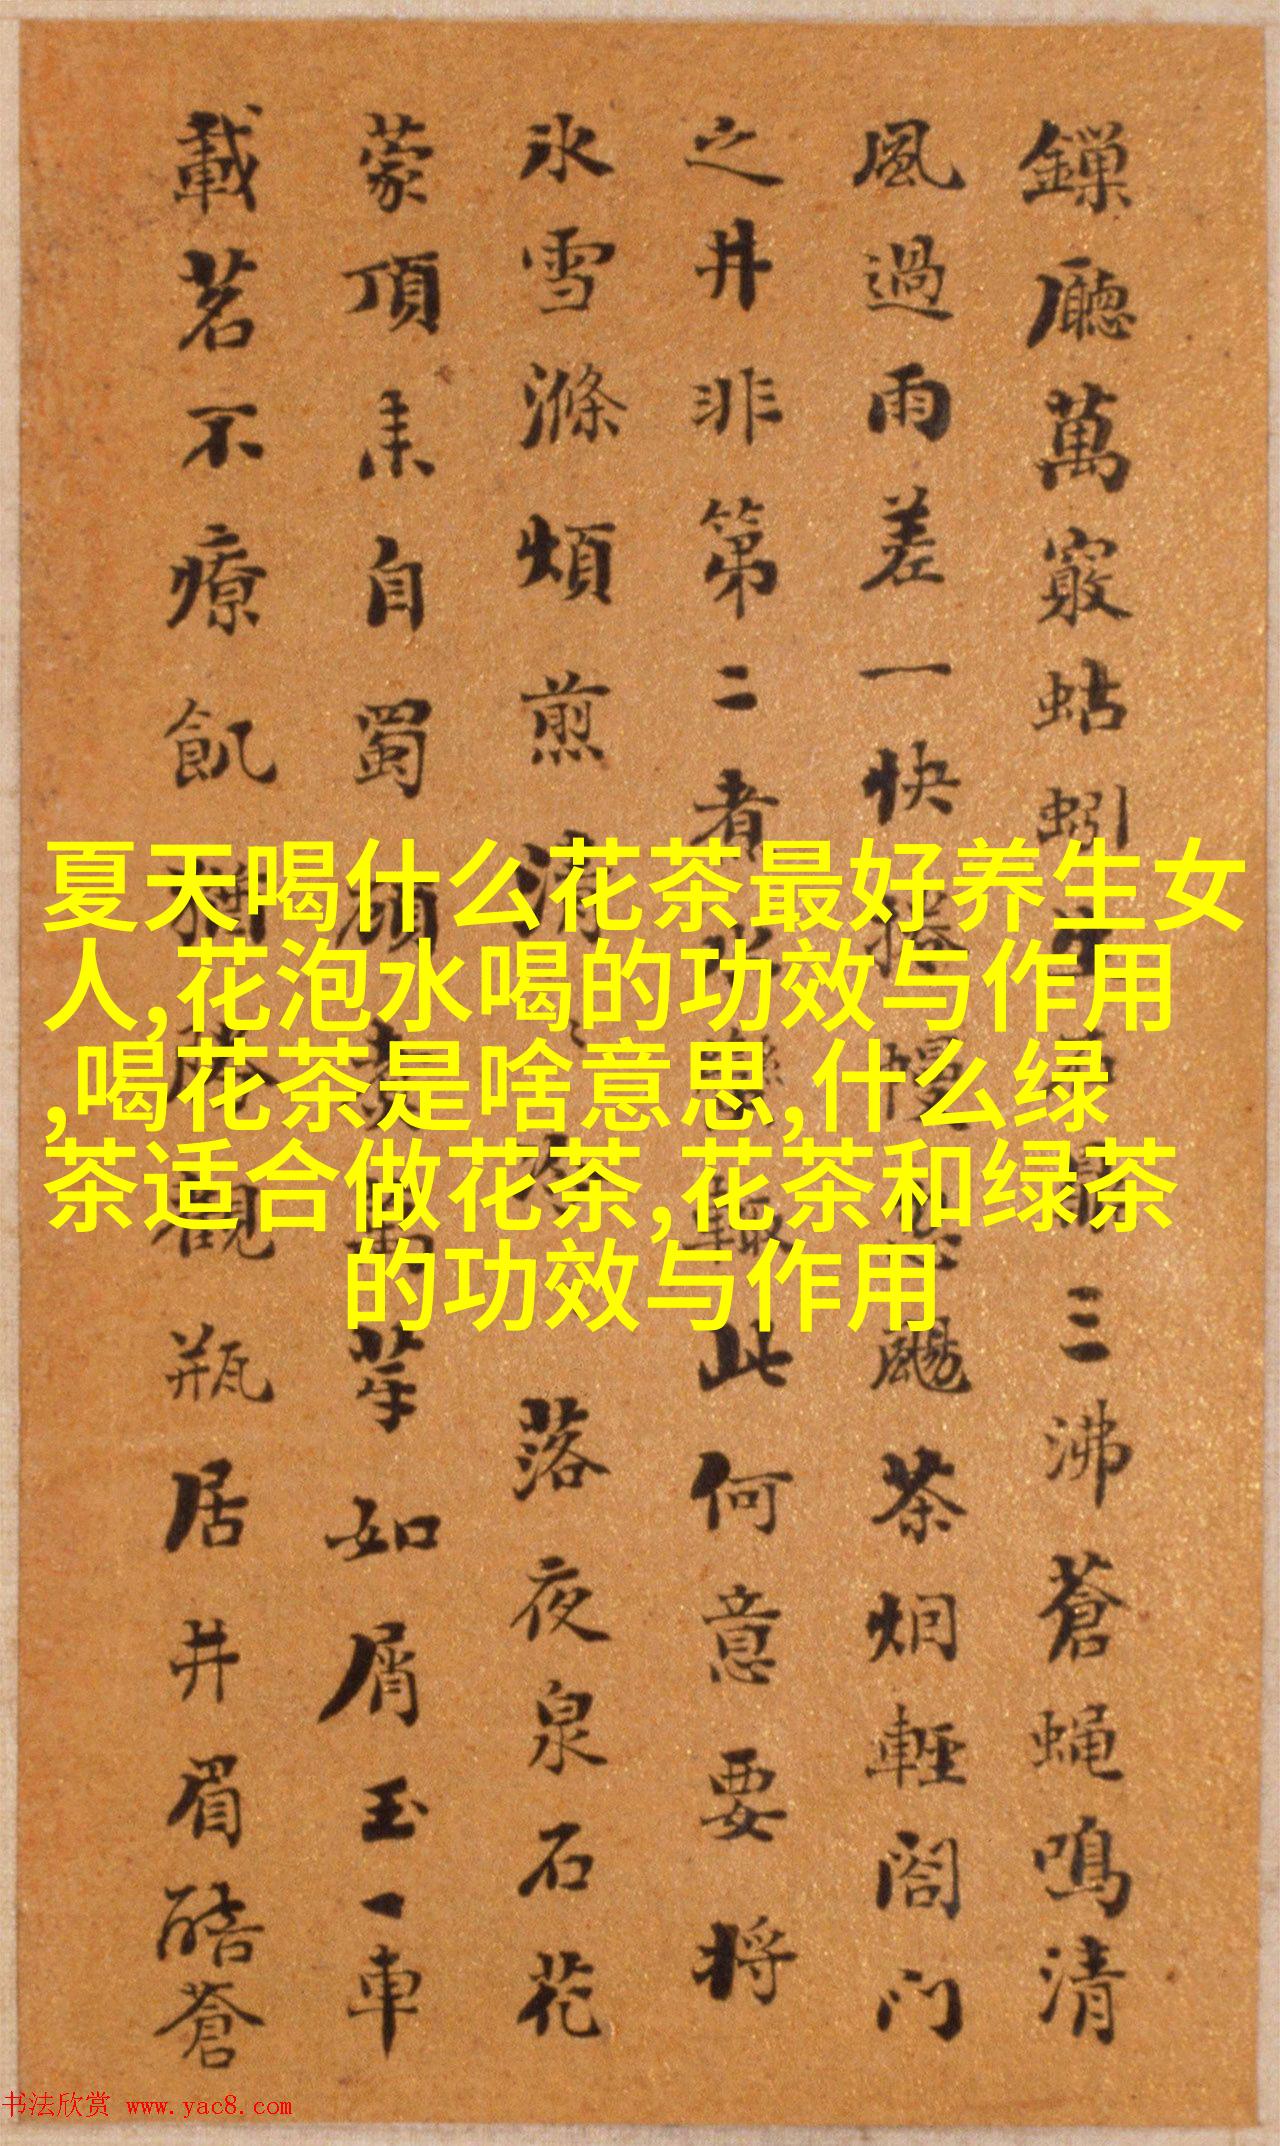 夏天喝什么花茶最好养生女
人,花泡水喝的功效与作用
,喝花茶是啥意思,什么绿
茶适合做花茶,花茶和绿茶
的功效与作用
廳萬竅蚓三沸蒼蝇鳴清
風過雨差一快颺茶烟輕閤门
之井非第二者此何意要将
氷雪滌煩煎清落夜泉石花
蒙頂耒自蜀顧芽如屑玉一車
載茗不療飢觀瓶居井眉酷蒼
书法欣赏 www.yac8.com